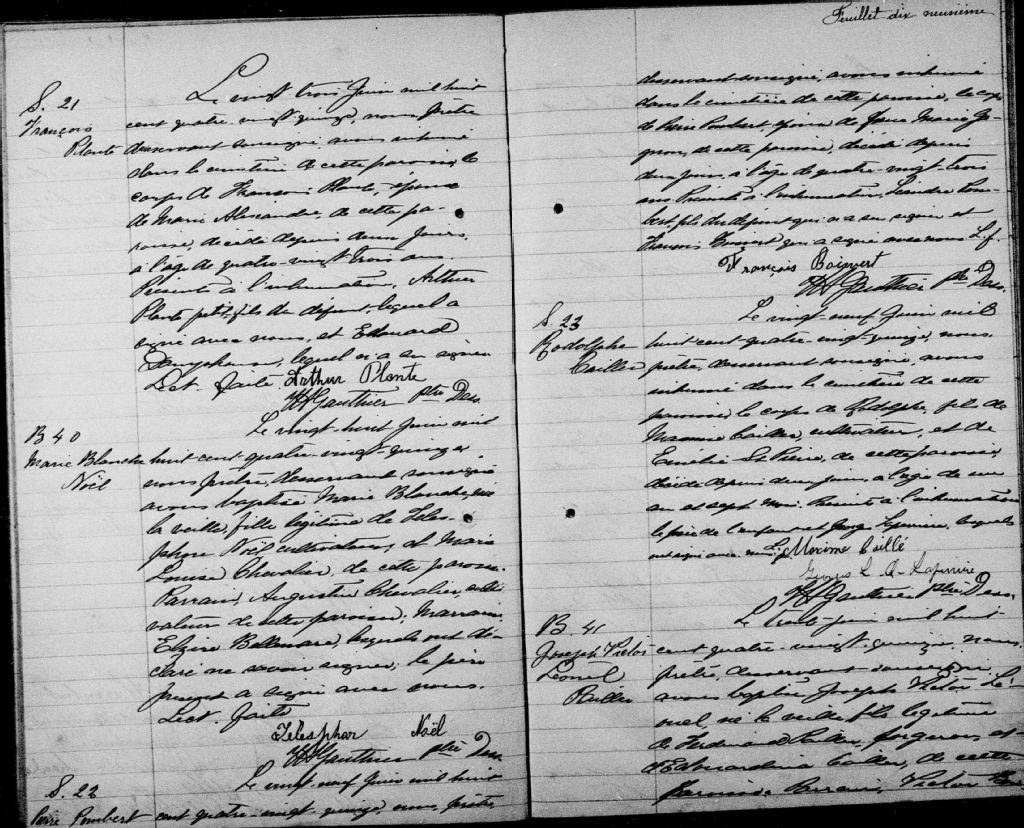 S. 21
François
Plante
Le vingt trois Juin mil huit
cent quatre-vingt-quinze, nous prêtre
desservant soussigné avons inhumé
dans le cimetière de cette paroisse le
corps de François Plante, époux
de Marie Alexandre, de cette pa-
roisse, décédé depuis deux jours,
à l'âge de quatre-vingt trois ans.
Présents à l'inhumation, Arthur
Plante petit-fils du défunt, lequel a
signé avec nous, et Edouard
lequel n'a su signer
Lect. faite Arthur Plante
Gauthier ptre Des.
B 40
Marie Blanche
Noël
Le vingt-huit Juin mil
huit cent quatre-vingt-quinze
nous prêtre, desservant soussigné
avons baptisé Marie Blanche, née
la veille, fille légitime de Téles-
phore Noël cultivateur, et Marie
Louise Chevalier, de cette paroisse.
Parrain, Augustin Chevalier, culti-
vateur de cette paroisse, Marraine
lesquels ont dé-
claré ne savoir signer; le père
présent a signé avec nous.
Lect. faite
Télesphor Noël
Gauthier ptre Des.
S. 22
Pierre Jombert
Le vingt-neuf Juin mil huit
cent quatre-vingt-quinze, nous, prêtre
Feuillet dix neuvième
desservant soussigné, avons inhumé
dans le cimetière de cette paroisse, le corps
de Pierre Jombert, époux de Marie
de cette paroisse, décédé depuis
deux jours, à l'âge de quatre-vingt-trois
ans Présents à l'inhumation,
fils du défunt qui n'a su signer et
François qui a signé avec nous L. f.
François Boisvert
Gauthier ptre Des.
S. 23
Rodolphe
Cailler
Le vingt-neuf Juin mil
huit cent quatre-vingt-quinze, nous
prêtre, desservant soussigné, avons
inhumé dans le cimetière de cette
paroisse le corps de Rodolphe, fils de
Maxime Cailler, cultivateur, et de
Emélie St Pierre, de cette paroisse,
décédé depuis deux jours, à l'âge de un
an et sept mois. Présents à l'inhumation
le père de l'enfant et lesquels
ont signé avec nous. L. f. Maxime Caillé
Georges L. A. Laferrière
Gauthier ptre Des.
B. 41
Joseph Victor
Léonel
Le trente Juin mil huit
cent quatre-vingt-quinze, nous
prêtre, desservant soussigné
avons baptisé Joseph Victor Lé-
onel né la veille fils légitime
de Ferdinand forgeron, et
d'Edouardina Cailler, de cette
paroisse. Parrain, Victor